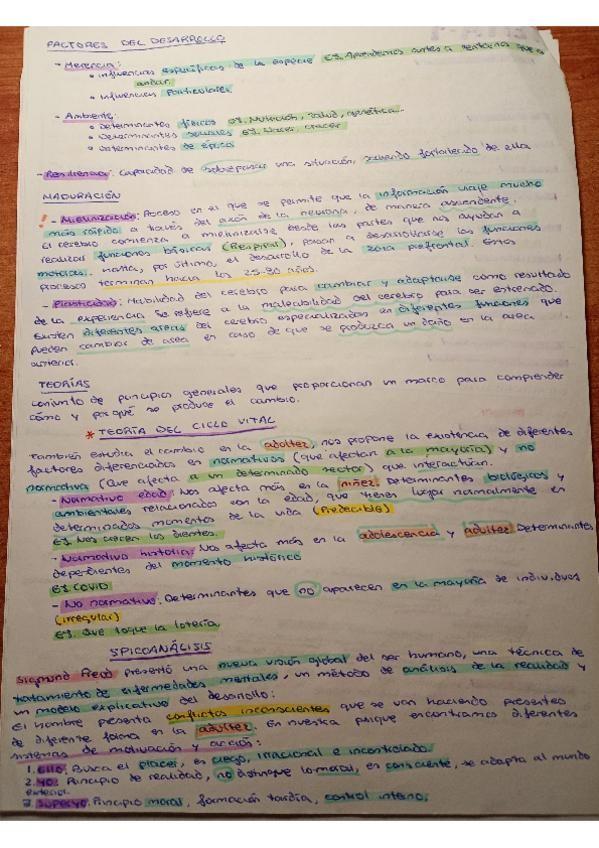 FACTORES DEL DESARROLLO
- Herencia:
• Influencias específicas de la especie Ej. Aprendemos antes a sentarnos que a
andar.
• Influencias particulares
- Ambiente:
• Determinantes físicos Ej. Nutrición, salud, genética.
• Determinantes sociales Ej. Nacer, crecer
• Determinantes de época
- Resiliencia: Capacidad de sobrepasar una situación, saliendo fortalecido de ella
MADURACIÓN
! - Mielinización: Proceso en el que se permite que la información viaje mucho
más rápido a través del axón de la neurona, de manera ascendente.
El cerebro comienza a mielinizarse desde las partes que nos ayudan a
realizar funciones básicas (Respirar), pasan a desarrollarse las funciones
motoras. hasta, por último, el desarrollo de la zona prefrontal. Estos
procesos terminan hacia los 25-30 años.
- Plasticidad: Habilidad del cerebro para cambiar y adaptarse como resultado
de la experiencia. Se refiere a la maleabilidad del cerebro para ser entrenado.
Existen diferentes areas del cerebro especializadas en diferentes funciones que
pueden cambiar de area en caso de que se produzca un daño en la area
anterior.
TEORÍAS
Conjunto de principios generales que proporcionan un marco para comprender
cómo y por qué se produce el cambio.
* TEORÍA DEL CICLO VITAL
También estudia el cambio en la adultez, nos propone la existencia de diferentes
factores diferenciados en normativos (que afectan a la mayoría) y no
normativa (Que afecta a un determinado sector) que interactúan.
- Normativo edad: Nos afecta más en la niñez. Determinantes biológicos y
ambientales relacionados con la edad, que tienen lugar normalmente en
determinados momentos de la vida (Predecible)
Ej. Nos crecen los dientes.
- Normativo historia: Nos afecta más en la adolescencia y adultez Determinantes
dependientes del momento histórico
Ej. COVID
- No normativo: Determinantes que no aparecen en la mayoría de individuos
(irregular)
Ej. Que toque la lotería.
SPICOANÁLISIS
Sigmund Freud presentó una nueva visión global del ser humano, una técnica de
tratamiento de enfermedades mentales, un método de análisis de la realidad y
un modelo explicativo del desarollo:
El hombre presenta conflictos inconscientes que se van haciendo presentes
de diferente forma en la adultez. En nuestra psique encontramos diferentes
sistemas de motivación y acción:
1. Ello: Busca el placer, es ciego, irracional e incontrolado.
2. Yo: Principio de realidad, no distingue lo moral, es consciente, se adapta al mundo
exterior.
3. Superyo: Principio moral, formación tardía, control interno,